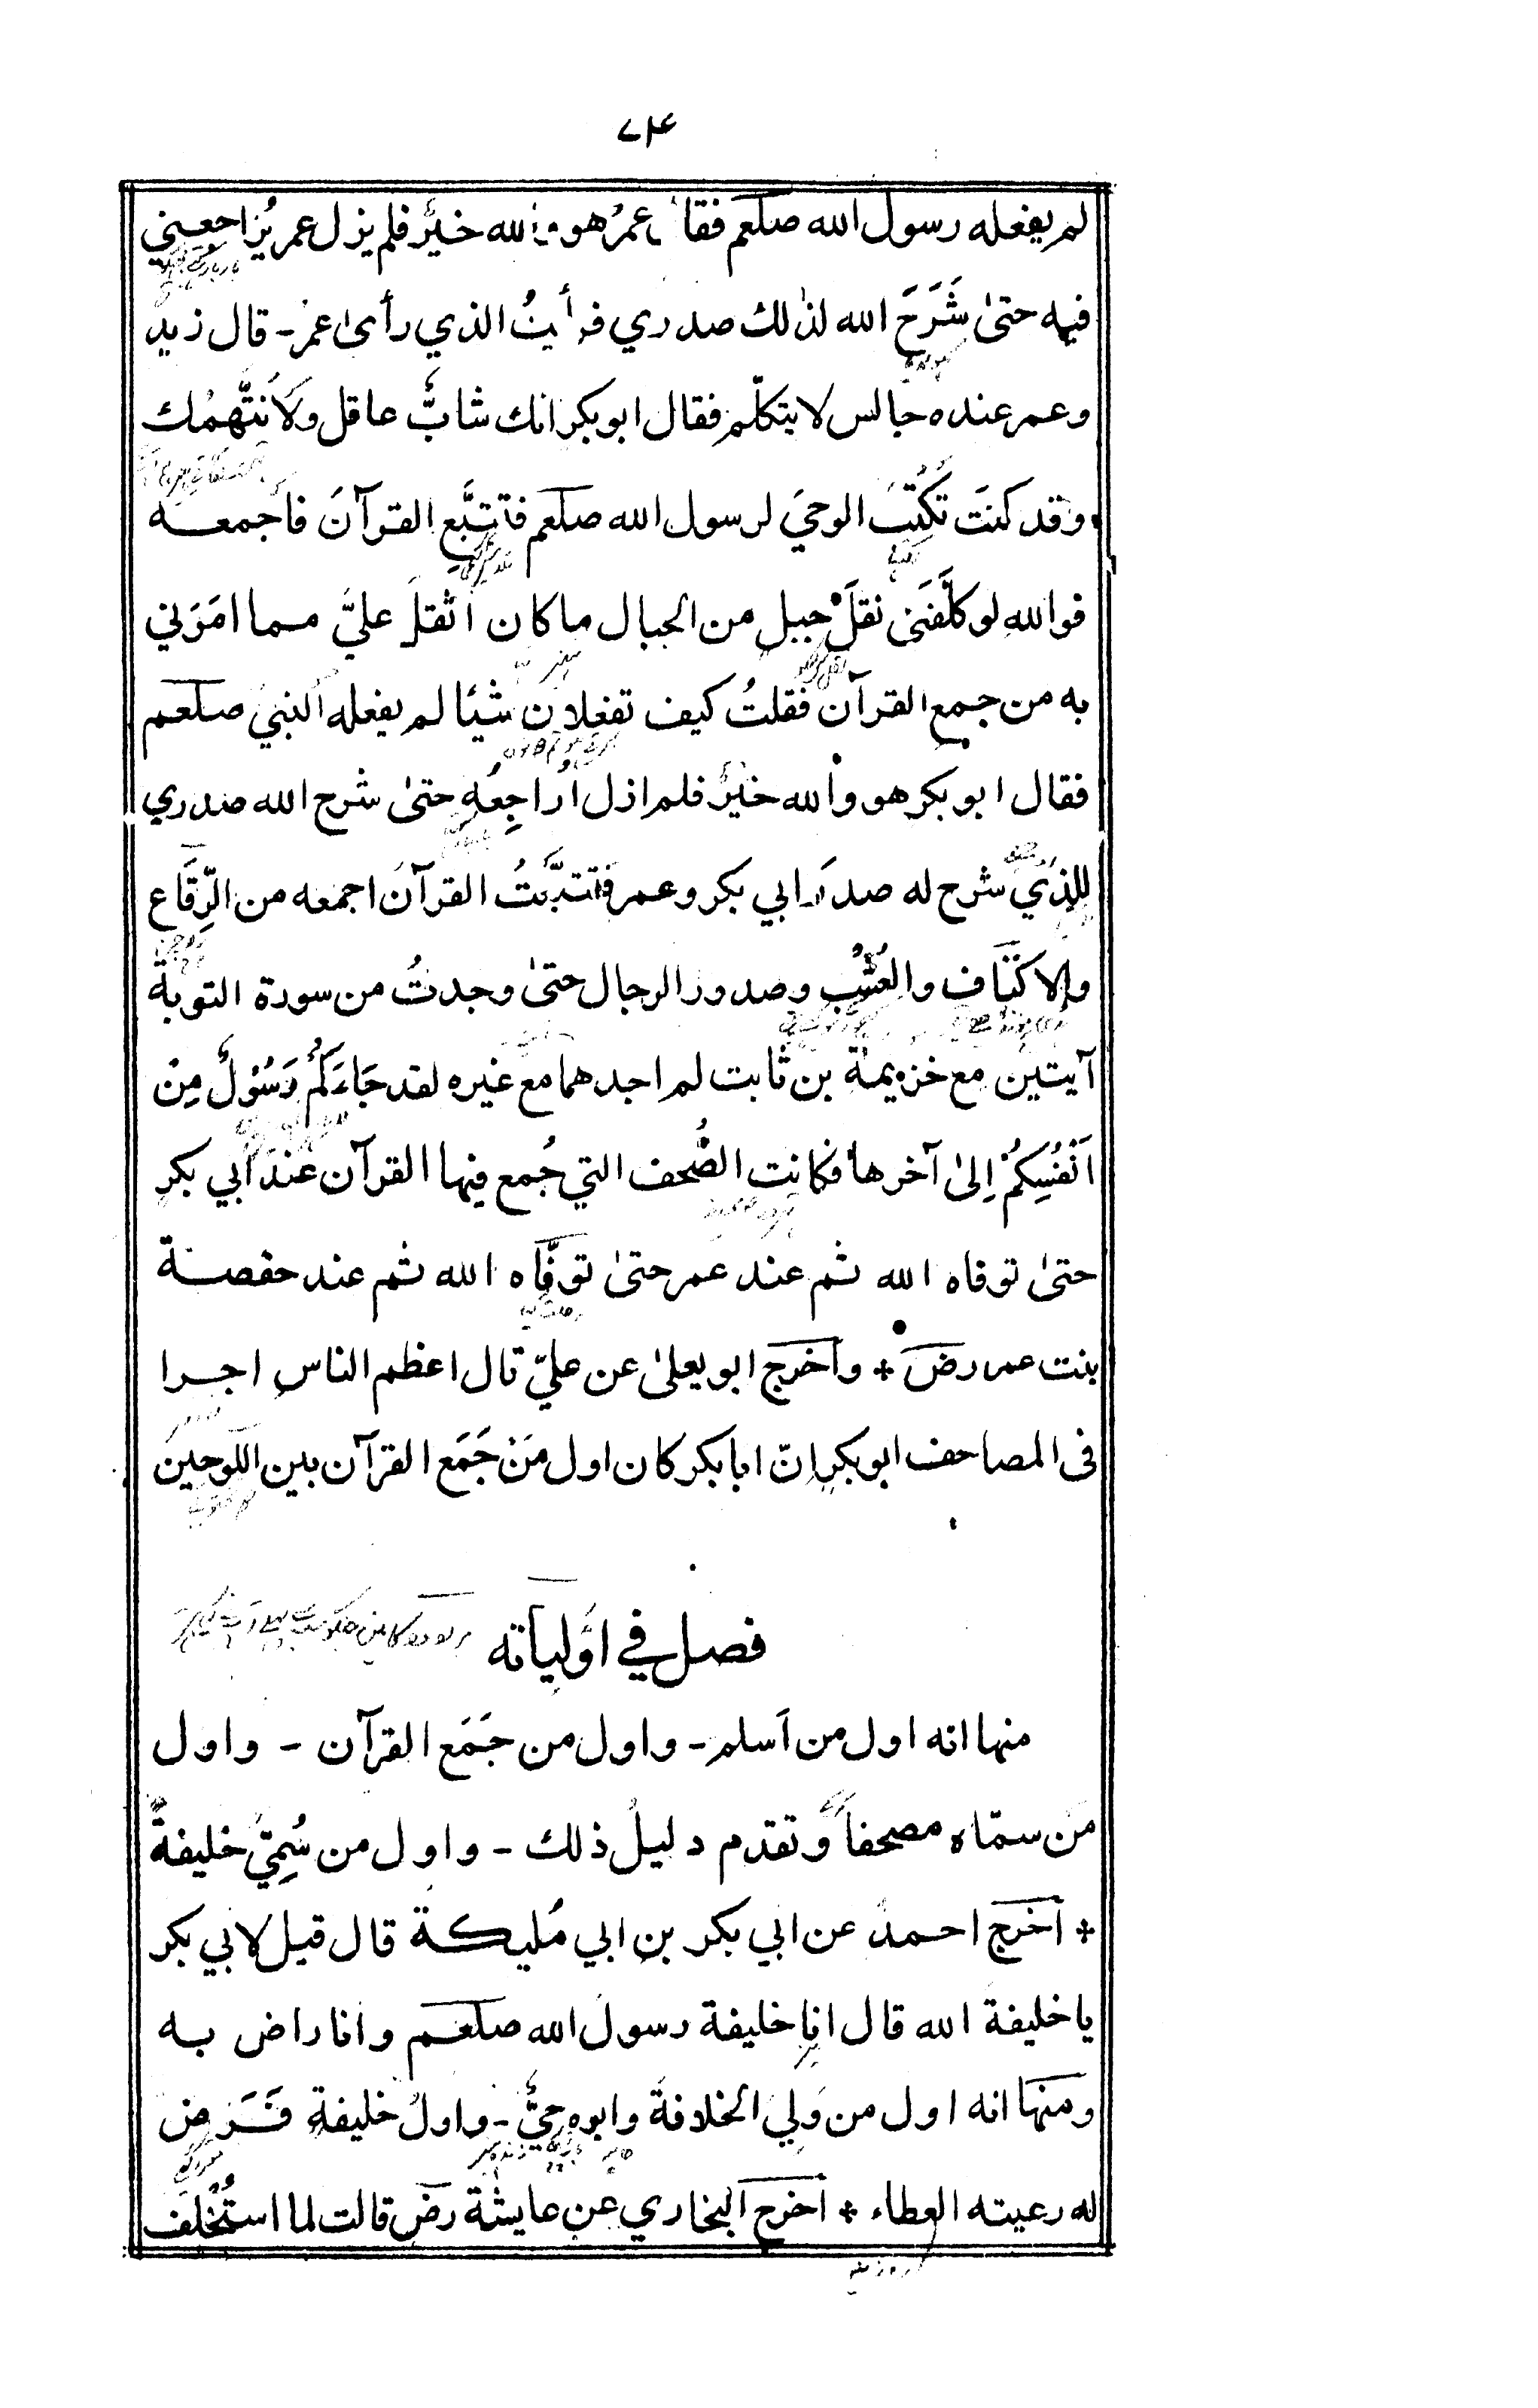 ٧۴
لم يفعله رسول الله صلعم فقال عمرُ هو والله خيرٌ فلم يزل عمر يُراجعني
فيه حتىٰ شَرَحَ الله لذٰلك صدري فرأيتُ الذي رأىٰ عمر - قال زيد
وعمر عنده جالس لا يتكلّم فقال ابو بكر انك شابٌّ عاقل ولا نَتَّهِمُك
وقد كنتَ تَكْتُبُ الوحيَ لرسول الله صلعم فتتبَّع القرآنَ فاجمعه
فوالله لو كلَّفَني نقلَ جبل من الجبال ما كان اثقلَ عليَّ مما امَرَني
به من جمع القرآن فقلتُ كيف تفعلان شيئا لم يفعله النبي صلعم
فقال ابو بكر هو والله خيرٌ فلم ازل اُراجِعُه حتىٰ شرح الله صدري
للذي شرح له صدرَ ابي بكر وعمر فتتبَّعتُ القرآنَ اجمعه من الرِّقَاع
والاكتاف والعُسُب وصدور الرجال حتىٰ وجدتُ من سورة التوبة
آيتين مع خزيمة بن ثابت لم اجدهما مع غيره لقد جَاءَكُمْ رَسُوْلٌ مِنْ
اَنْفُسِكُمْ اِلىٰ آخرها فكانت الصُّحف التي جُمع فيها القرآن عند ابي بكر
حتىٰ توفاه الله ثم عند عمر حتىٰ توفَّاه الله ثم عند حفصة
بنت عمر رضـ * وأخرج ابو يعلىٰ عن عليّ قال اعظم الناس اجرا
فى المصاحف ابو بكر انّ ابا بكر كان اول مَنْ جَمَع القرآن بين اللَّوحين
فصل في اوّلياته
منها انه اول من اَسلم - واول من جَمَع القرآن - واول
من سمّاه مصحفاً وتقدم دليلُ ذلك - واول من سُمِّيَ خليفةً
* اَخرج احمدُ عن ابي بكر بن ابي مُليكة قال قيل لابي بكر
يا خليفة الله قال انا خليفة رسول الله صلعم وانا راض به
ومنها انه اول من وَلِيَ الخلافةَ وابوه حيٌّ - واولُ خليفةٍ فَرَض
له رعيته العطاء * اَخرج البخاري عن عايشة رضـ قالت لما استُخْلِف